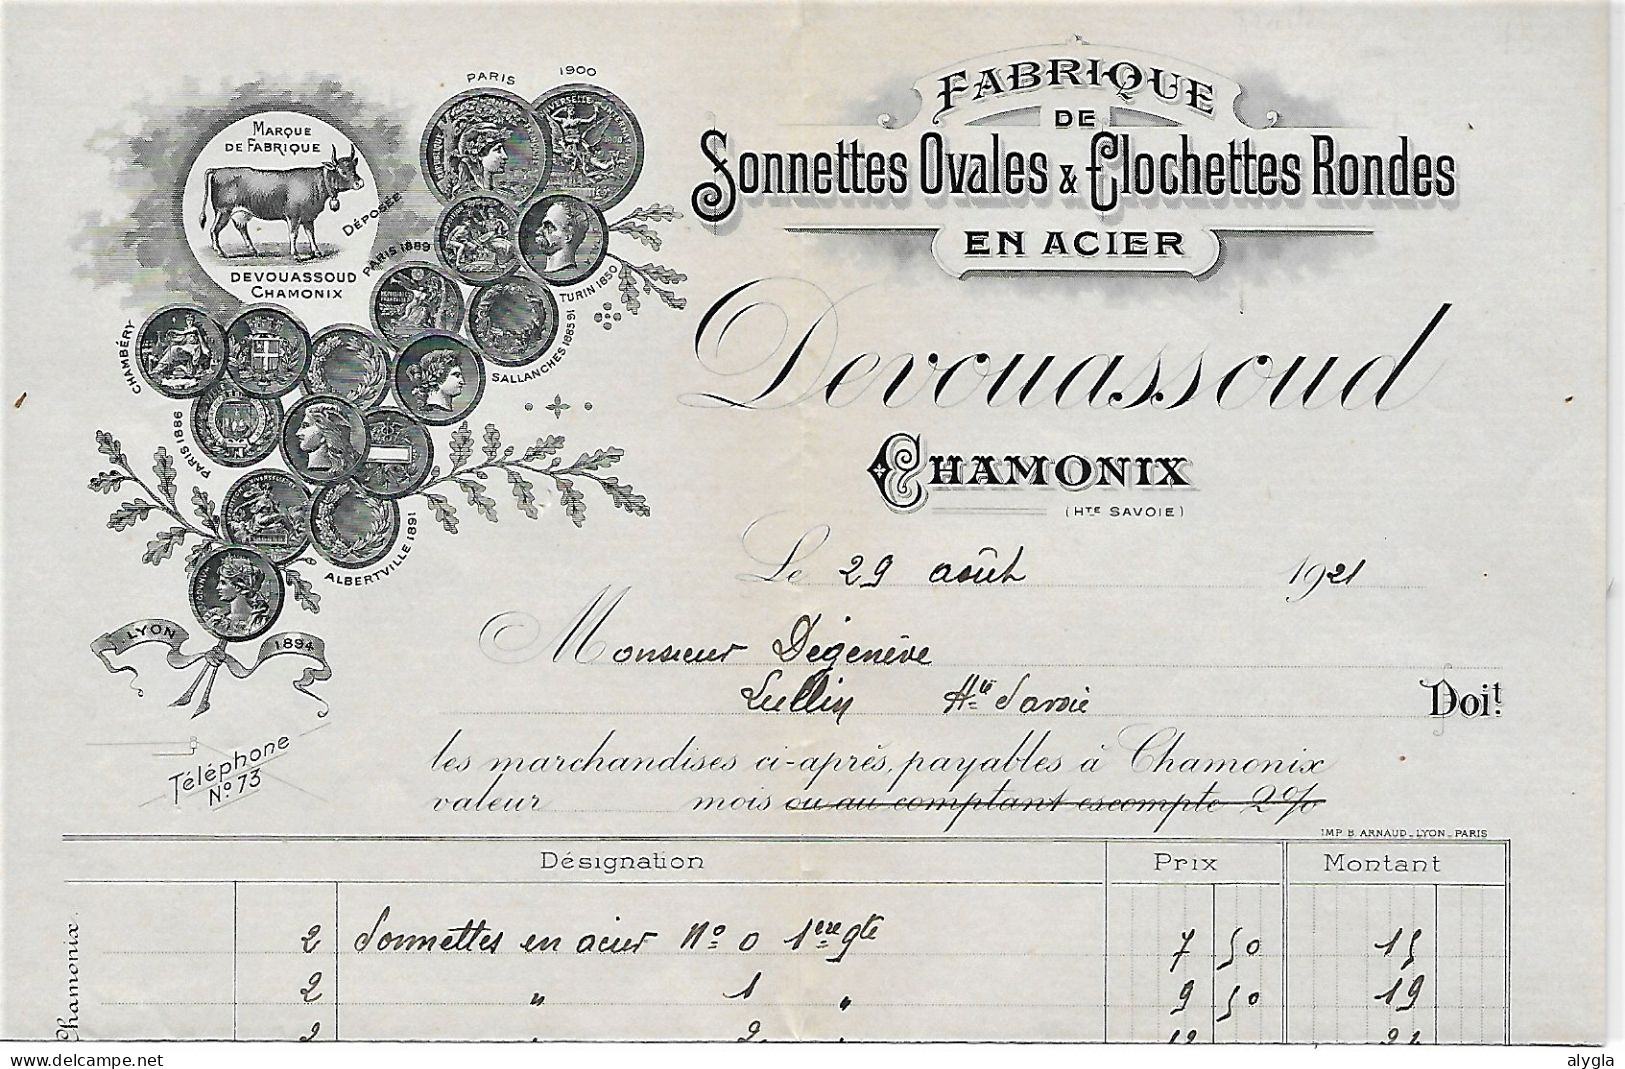 FABRIQUE
DE
Sonnettes Ovales & Clochettes Rondes
EN ACIER
Devouassoud
CHAMONIX
(HTE SAVOIE)
PARIS 1900
MARQUE
DE FABRIQUE
DÉPOSÉE
DEVOUASSOUD
CHAMONIX
PARIS 1889
TURIN 1850
SALLANCHES 1885 91
CHAMBÉRY
PARIS 1886
ALBERTVILLE 1891
LYON 1894
Téléphone
No. 73
Le 29 août 1921
Monsieur Dégenève
Lullin Hte Savoie Doit.
les marchandises ci-après, payables à Chamonix
valeur mois ou au comptant escompte 2%
IMP. B. ARNAUD_LYON_PARIS
Désignation Prix Montant
2 Sonnettes en acier No 0 1ere qte 7 50 15
2 " 1 " 9 50 19
2 " 2 " 12 24
Chamonix.
delcampe.net
alygla